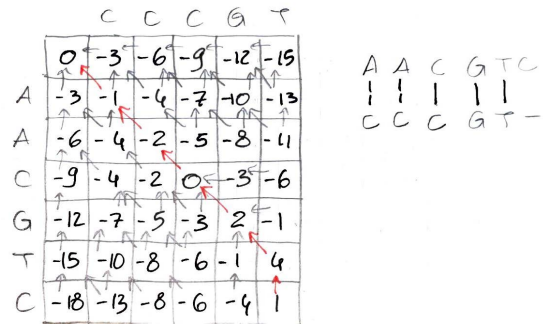 C C C G T
0 -3 -6 -9 -12 -15
A -3 -1 -4 -7 -10 -13
A -6 -4 -2 -5 -8 -11
C -9 -4 -2 0 -3 -6
G -12 -7 -5 -3 2 -1
T -15 -10 -8 -6 -1 4
C -18 -13 -8 -6 -4 1
A A C G T C
C C C G T -